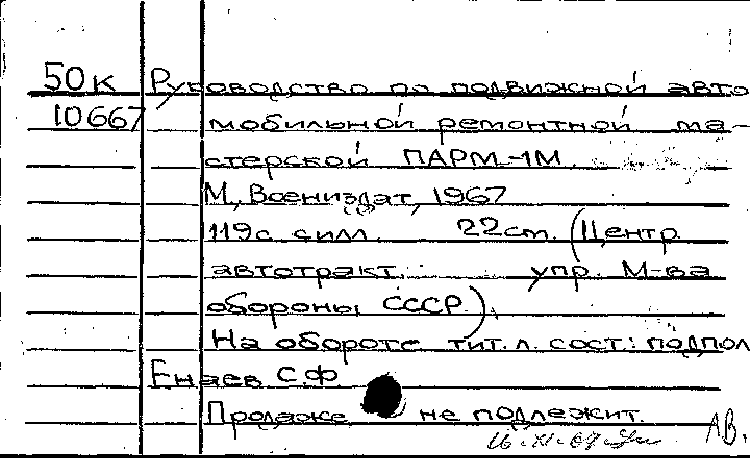 50к Руководство по подвижной авто
10667 мобильной ремонтной ма-
стерской ПАРМ-1М.
М, Воениздат, 1967
119с. с илл. 22см. (Центр.
автотракт. упр. М-ва
обороны СССР).
На обороте тит. л. сост.: подпол
Енаев С.Ф.
Продаже не подлежит.
АВ.